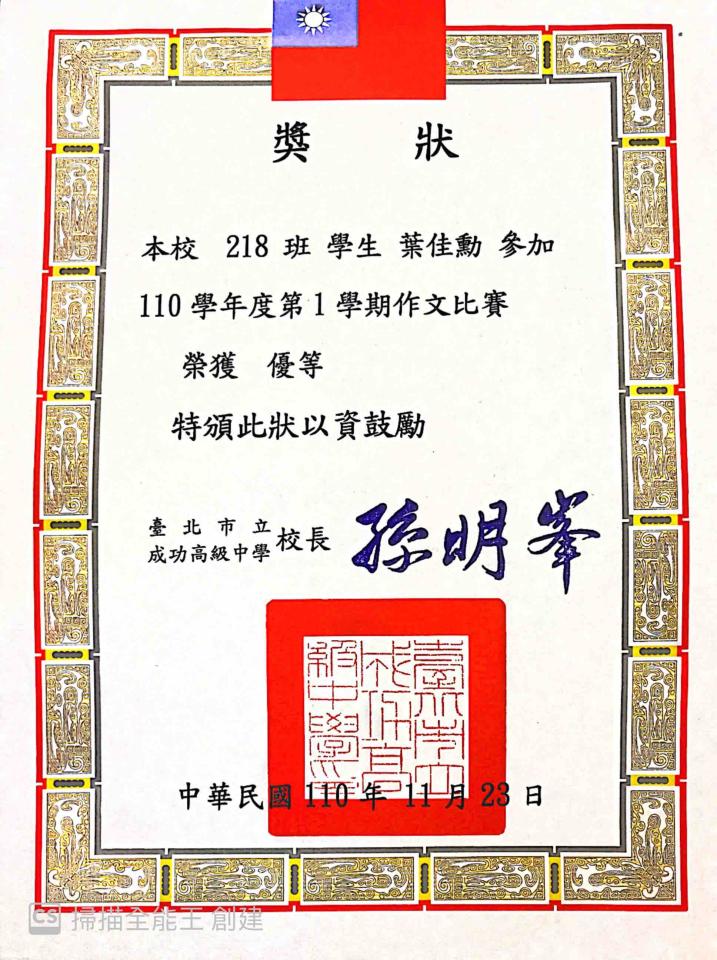 獎狀
本校 218 班 學生 葉佳勳 參加
110 學年度第 1 學期作文比賽
榮獲 優等
特頒此狀以資鼓勵
臺北市立
成功高級中學 校長 孫明峯
臺北市立
成功高
級中學
中華民國 110 年 11 月 23 日
CS 掃描全能王 創建